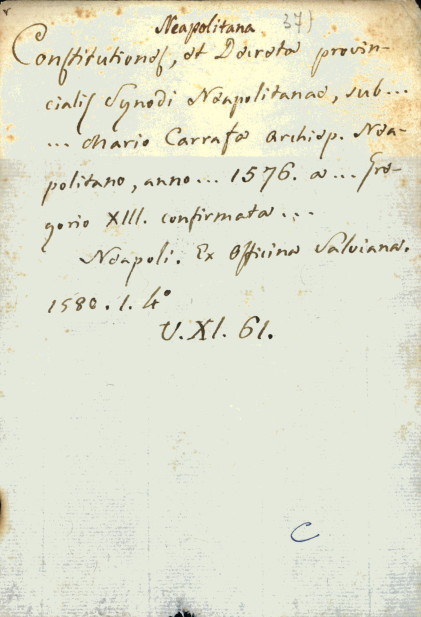 Neapolitana 37)
Constitutiones, et Decreta provin-
cialis Synodi Neapolitanae, sub...
... Mario Carrafa Archiep. Nea-
politano, anno... 1576. a... Gre-
gorio XIII. confirmata...
Neapoli. Ex Officina Salviana.
1580. 1. 4°
V. XI. 61.
C